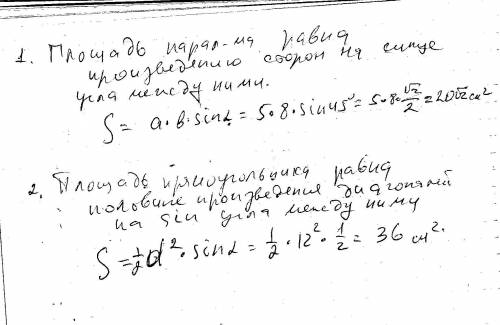 1. Площадь парал-ма равна
произведению сторон на синус
угла между ними.
S = a·b·sinα = 5·8·sin45° = 5·8·√2/2 = 20√2 см²
2. Площадь прямоугольника равна
половине произведения диагоналей
на sin угла между ними
S = 1/2 d²·sinα = 1/2·12²·1/2 = 36 см².